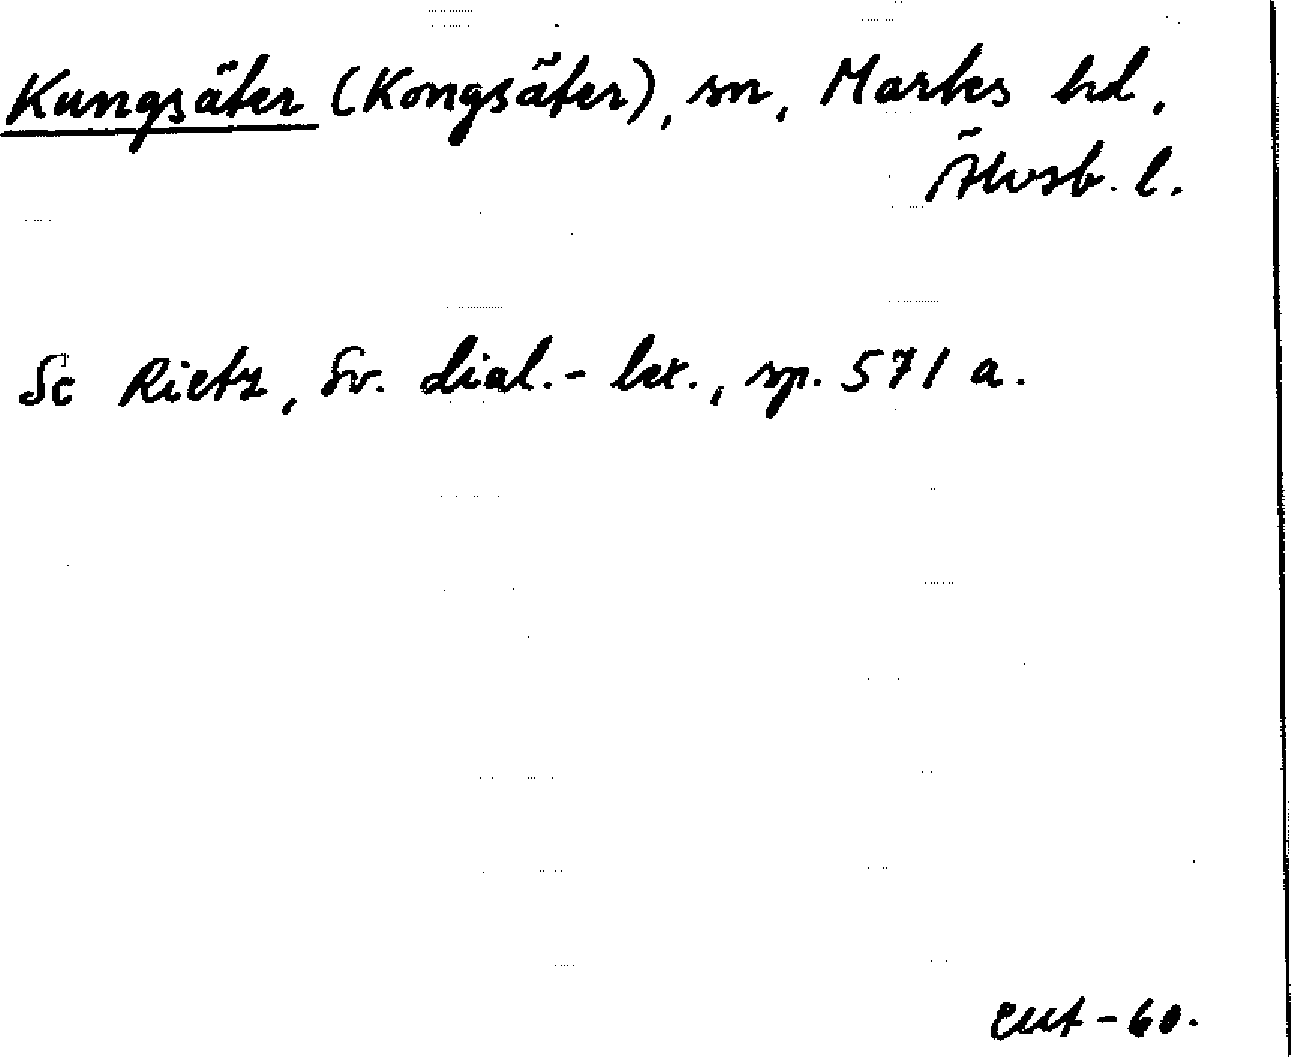 Kungsäter (Kongsäter), sn, Marks hd,
Älvsb. l.
Se Rietz, Sv. dial.-lex., sp. 571 a.
-60.